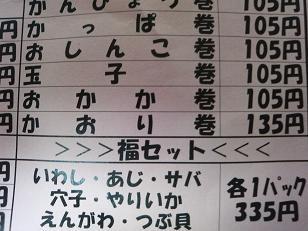 かんぴょう巻 105円
円 かっぱ巻 105円
円 おしんこ巻 105円
円 玉子巻 105円
円 おかか巻 105円
円 かおり巻 135円
>>>福セット<<<
円 いわし・あじ・サバ
円 穴子・やりいか 各1パック
円 えんがわ・つぶ貝 335円